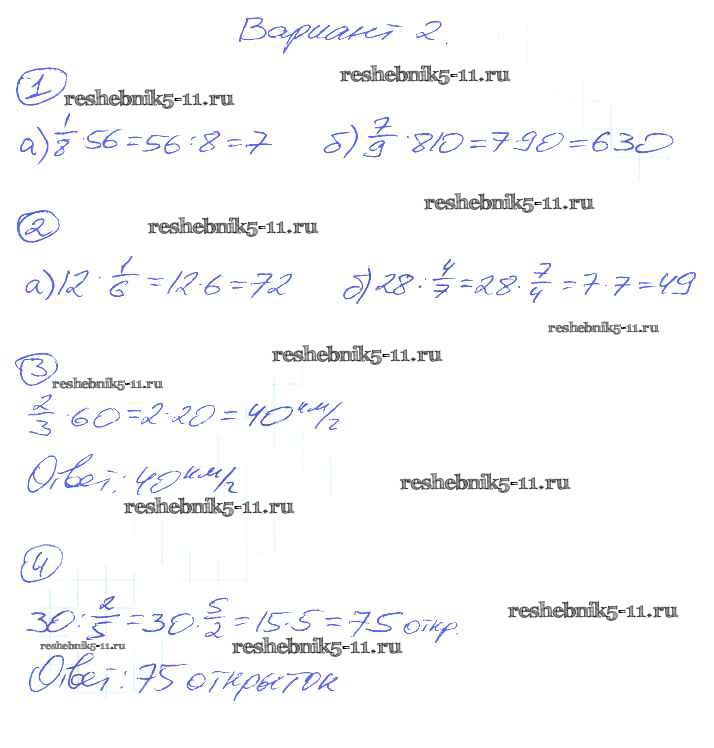 Вариант 2.
reshebnik5-11.ru
1
reshebnik5-11.ru
а) 1/8 · 56 = 56 : 8 = 7 б) 7/9 · 810 = 7·90 = 630
reshebnik5-11.ru
2
reshebnik5-11.ru
а) 12 : 1/6 = 12·6 = 72 б) 28 : 4/7 = 28 · 7/4 = 7·7 = 49
reshebnik5-11.ru
reshebnik5-11.ru
3
reshebnik5-11.ru
2/3 · 60 = 2·20 = 40 км/г
Ответ: 40 км/г
reshebnik5-11.ru
reshebnik5-11.ru
4
30 : 2/5 = 30 · 5/2 = 15·5 = 75 откр.
reshebnik5-11.ru
reshebnik5-11.ru
reshebnik5-11.ru
Ответ: 75 открыток